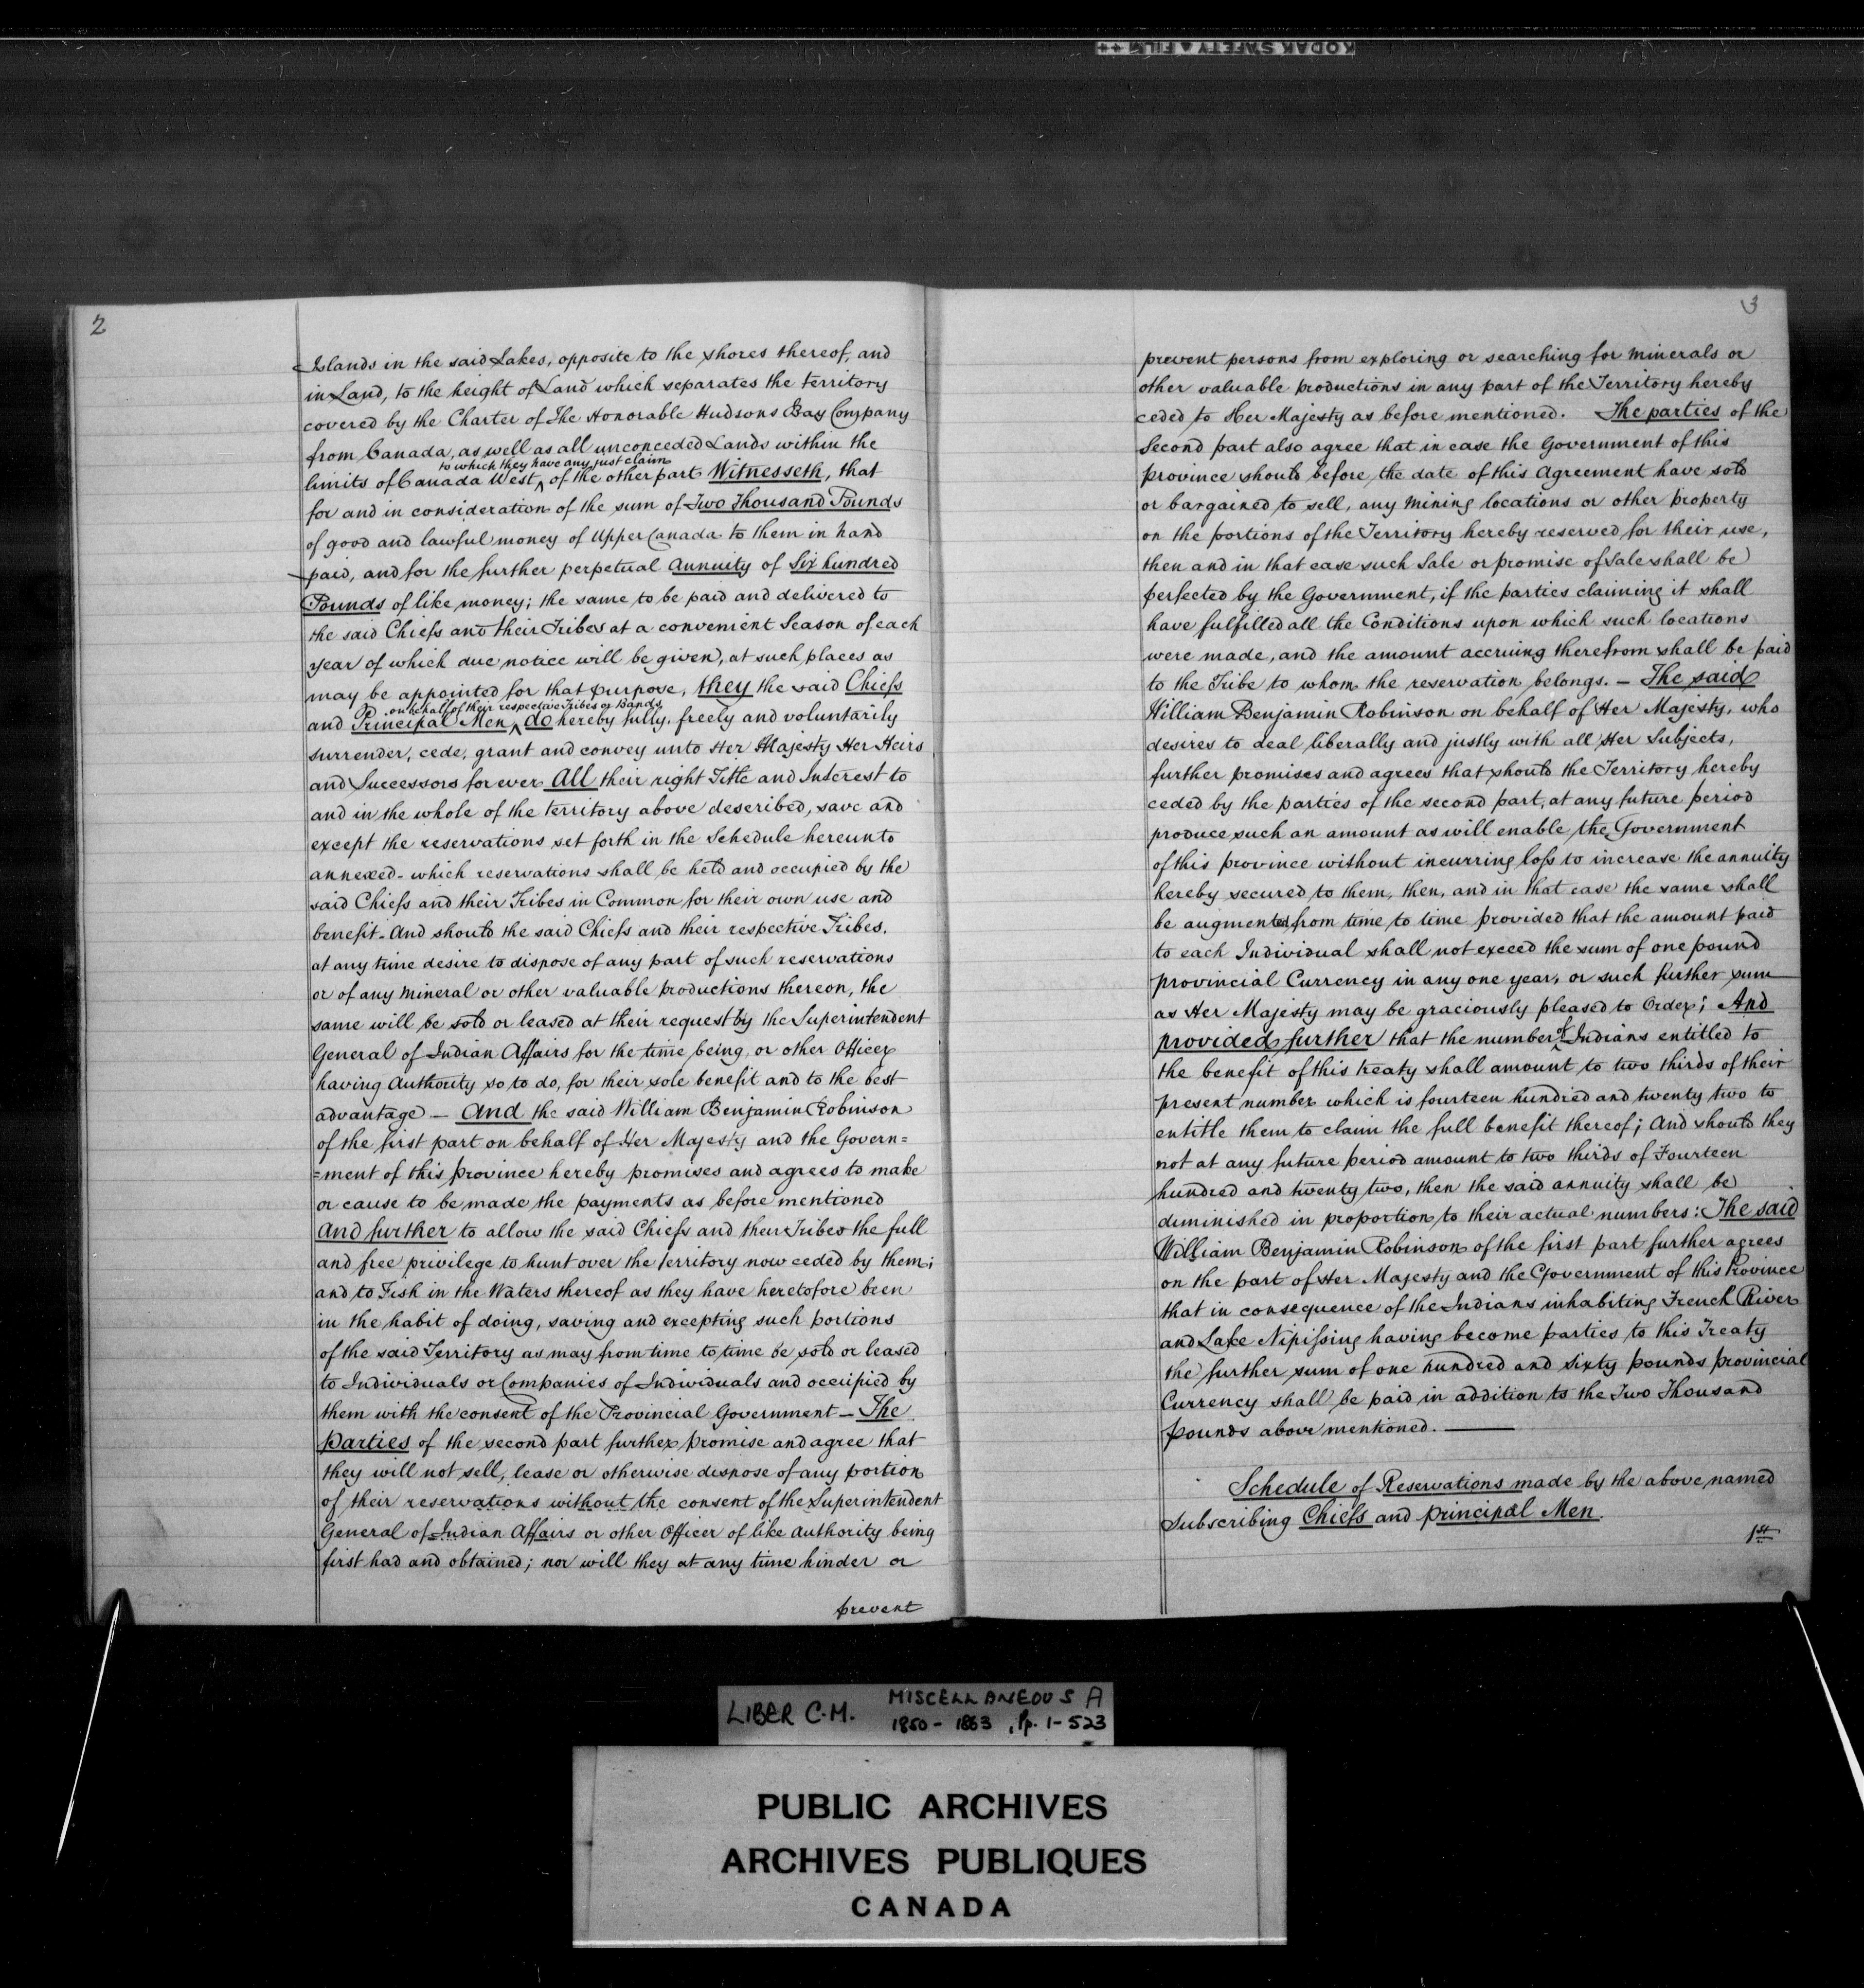 KODAK SAFETY FILM
2
Islands in the said Lakes, opposite to the shores thereof, and
in Land, to the height of Land which separates the territory
covered by the Charter of The Honorable Hudsons Bay Company
from Canada, as well as all unconceded Lands within the
to which they have any just claim
limits of Canada West, of the other part Witnesseth, that
for and in consideration of the sum of Two Thousand Pounds
of good and lawful money of Upper Canada to them in hand
paid, and for the further perpetual annuity of Six hundred
Pounds of like money; the same to be paid and delivered to
the said Chiefs and their Tribes at a convenient Season of each
year of which due notice will be given, at such places as
may be appointed for that purpose, they the said Chiefs
on behalf of their respective Tribes or Bands
and Principal Men ^ do hereby fully, freely and voluntarily
surrender, cede, grant and convey unto Her Majesty Her Heirs
and Successors for ever All their right Title and Interest to
and in the whole of the territory above described, save and
except the reservations set forth in the Schedule hereunto
annexed - which reservations shall be held and occupied by the
said Chiefs and their Tribes in Common for their own use and
benefit - And should the said Chiefs and their respective Tribes.
at any time desire to dispose of any part of such reservations
or of any mineral or other valuable productions thereon, the
same will be sold or leased at their request by the Superintendent
General of Indian Affairs for the time being, or other Officer
having authority so to do, for their sole benefit and to the best
advantage — And the said William Benjamin Robinson
of the first part on behalf of Her Majesty and the Govern=
=ment of this province hereby promises and agrees to make
or cause to be made the payments as before mentioned
And further to allow the said Chiefs and their Tribes the full
and free privilege to hunt over the territory now ceded by them;
and to Fish in the Waters thereof as they have heretofore been
in the habit of doing, saving and excepting such portions
of the said Territory as may from time to time be sold or leased
to Individuals or Companies of Individuals and occupied by
them with the consent of the Provincial Government — The
Parties of the second part further promise and agree that
they will not sell, lease or otherwise dispose of any portion
of their reservations without the consent of the Superintendent
General of Indian Affairs or other Officer of like authority being
first had and obtained; nor will they at any time hinder or
prevent
3
prevent persons from exploring or searching for minerals or
other valuable productions in any part of the Territory hereby
ceded to Her Majesty as before mentioned. The parties of the
Second part also agree that in case the Government of this
Province should before the date of this Agreement have sold
or bargained to sell, any mining locations or other property
on the portions of the Territory hereby reserved for their use,
then and in that case such Sale or promise of Sale shall be
perfected by the Government, if the parties claiming it shall
have fulfilled all the Conditions upon which such locations
were made, and the amount accruing therefrom shall be paid
to the Tribe to whom the reservation belongs. — The said
William Benjamin Robinson on behalf of Her Majesty, who
desires to deal liberally and justly with all Her Subjects,
further promises and agrees that should the Territory hereby
ceded by the parties of the second part, at any future period
produce such an amount as will enable the Government
of this province without incurring loss to increase the annuity
hereby secured to them, then, and in that case the same shall
be augmented from time to time provided that the amount paid
to each Individual shall not exceed the sum of one pound
provincial Currency in any one year, or such further sum
as Her Majesty may be graciously pleased to Order; And
provided further that the number of Indians entitled to
the benefit of this treaty shall amount to two thirds of their
present number which is fourteen hundred and twenty two to
entitle them to claim the full benefit thereof; And should they
not at any future period amount to two thirds of Fourteen
hundred and twenty two, then the said annuity shall be
diminished in proportion to their actual numbers: The said
William Benjamin Robinson of the first part further agrees
on the part of Her Majesty and the Government of this Province
that in consequence of the Indians inhabiting French River
and Lake Nipissing having become parties to this Treaty
the further sum of one hundred and sixty pounds provincial
Currency shall be paid in addition to the Two Thousand
pounds above mentioned. ———
Schedule of Reservations made by the above named
Subscribing Chiefs and principal Men.
1st
LIBER C.M. MISCELLANEOUS A
1850 - 1863, Pp. 1-523
PUBLIC ARCHIVES
ARCHIVES PUBLIQUES
CANADA